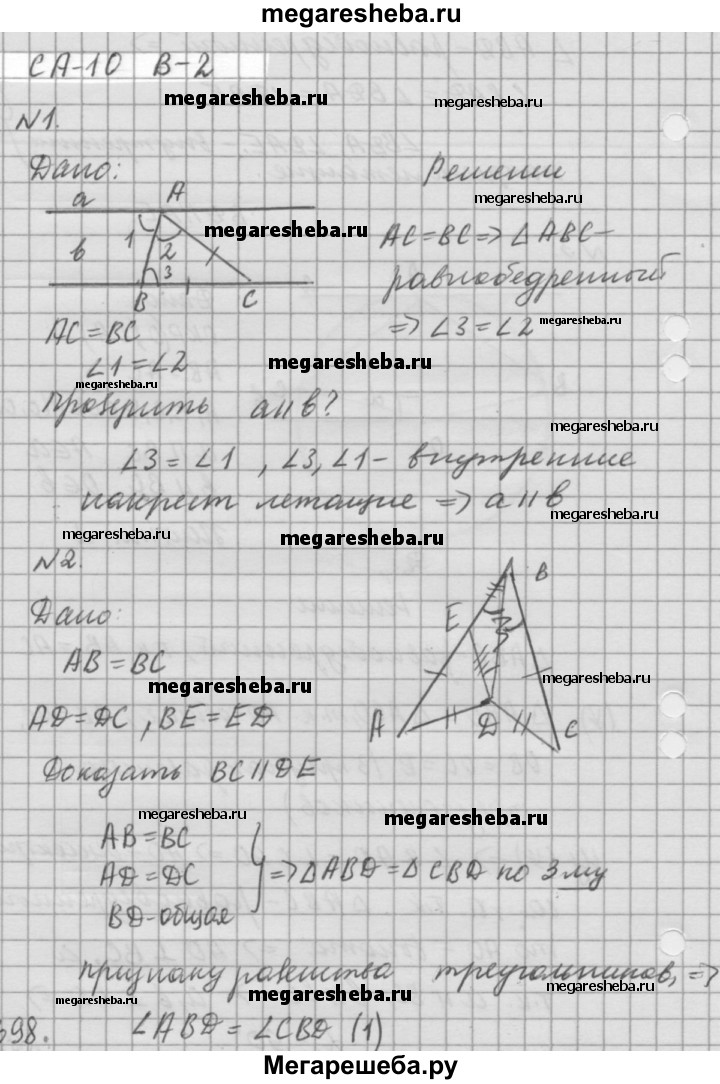 megaresheba.ru
СА-10 В-2
megaresheba.ru megaresheba.ru
№1.
Дано: Решении
megaresheba.ru
a A
megaresheba.ru
1 2 3 b
B C
AC=BC=> ∠ ABC-
равнобедренный
=> ∠3=∠2 megaresheba.ru
AC=BC
∠1=∠2 megaresheba.ru
megaresheba.ru
проверить a||b?
megaresheba.ru
∠3=∠1, ∠3,∠1- внутренние
накрест лежащие => a||b
megaresheba.ru
megaresheba.ru megaresheba.ru megaresheba.ru
№2.
Дано:
B
E
AB=BC
megaresheba.ru megaresheba.ru
A D C
AD=DC, BE=ED
Доказать BC||DE
megaresheba.ru megaresheba.ru
AB=BC
AD=DC
BD-общая
=> △ABD=△CBD по 3му
признаку равенства треугольников, =>
megaresheba.ru megaresheba.ru megaresheba.ru
∠ABD=∠CBD (1)
398.
Мегарешеба.ру